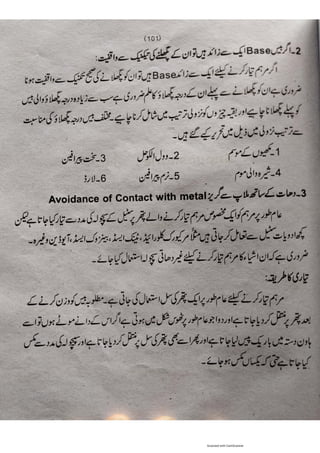 (101)
2۔ اگر بیس Base ایک سے زائد ہیں تو ان کے پگھلنے کی تکنیک سے واقفیت:
اگر مرہم تیار کرنے کیلئے ایک سے زائد Base ہیں تو ان کو پگھلانے کی صحیح تکنیک سے واقفیت ہونا
ضروری ہے ان کو پگھلانے سے پہلے ان کے درجہ پگھلاؤ کا علم ضروری ہے سب سے زیادہ درجہ پگھلاؤ والی بیس
کو پہلے پگھلانا چاہیے اور بقیہ چیزوں کو نزولی ترتیب میں شامل کرنا چاہیے۔ مختلف بیس درجہ پگھلاؤ کی مناسبت
سے ترتیب نزولی میں ذیل میں تحریر کیے گئے ہیں۔
1۔ مکھیوں کے موم 2۔ وول الکوحل 3۔ سخت پیرافین
4۔ شیرہ والی موم 5۔ نرم پیرافین 6۔ لارڈ
3۔ دھات کے ساتھ ملاپ سے گریز Avoidance of Contact with metal
عام طور پر مرہم کو ایک مخصوص مرہم تیار کرنے والے پتھر پر سٹیل کے سپچولہ کی مدد سے تیار کیا جاتا ہے لیکن
کچھ ادویات سٹیل سے تعامل کر جاتی ہیں مثلاً مرکیورک کلورائیڈ، ٹینک ایسڈ، بینزوئک ایسڈ، آیوڈین وغیرہ۔
ضروری ہے کہ ان اشیاء کا مرہم تیار کرنے کیلئے غیر دھاتی سپچولہ استعمال کیا جائے۔
تیاری کا طریقہ:
مرہم تیار کرنے کیلئے عام طور پر ایک پتھر کی سل استعمال کی جاتی ہے۔ مطلوبہ بیس کو وزن کرنے کے
بعد پتھر پر منتقل کر دیا جاتا ہے اور دوا جو عام طور پر ٹھوس شکل میں ہوتی ہے اگر اس کے دانے موٹے ہوں تو اسے
ہاون دستہ میں باریک پیس لیا جاتا ہے اور پھر اسے بھی پتھر کی سل پر منتقل کر دیا جاتا ہے اور سپچولہ کی مدد سے مکس
کیا جاتا ہے حتیٰ کہ یکساں مکس ہو جائے۔
Scanned with CamScanner